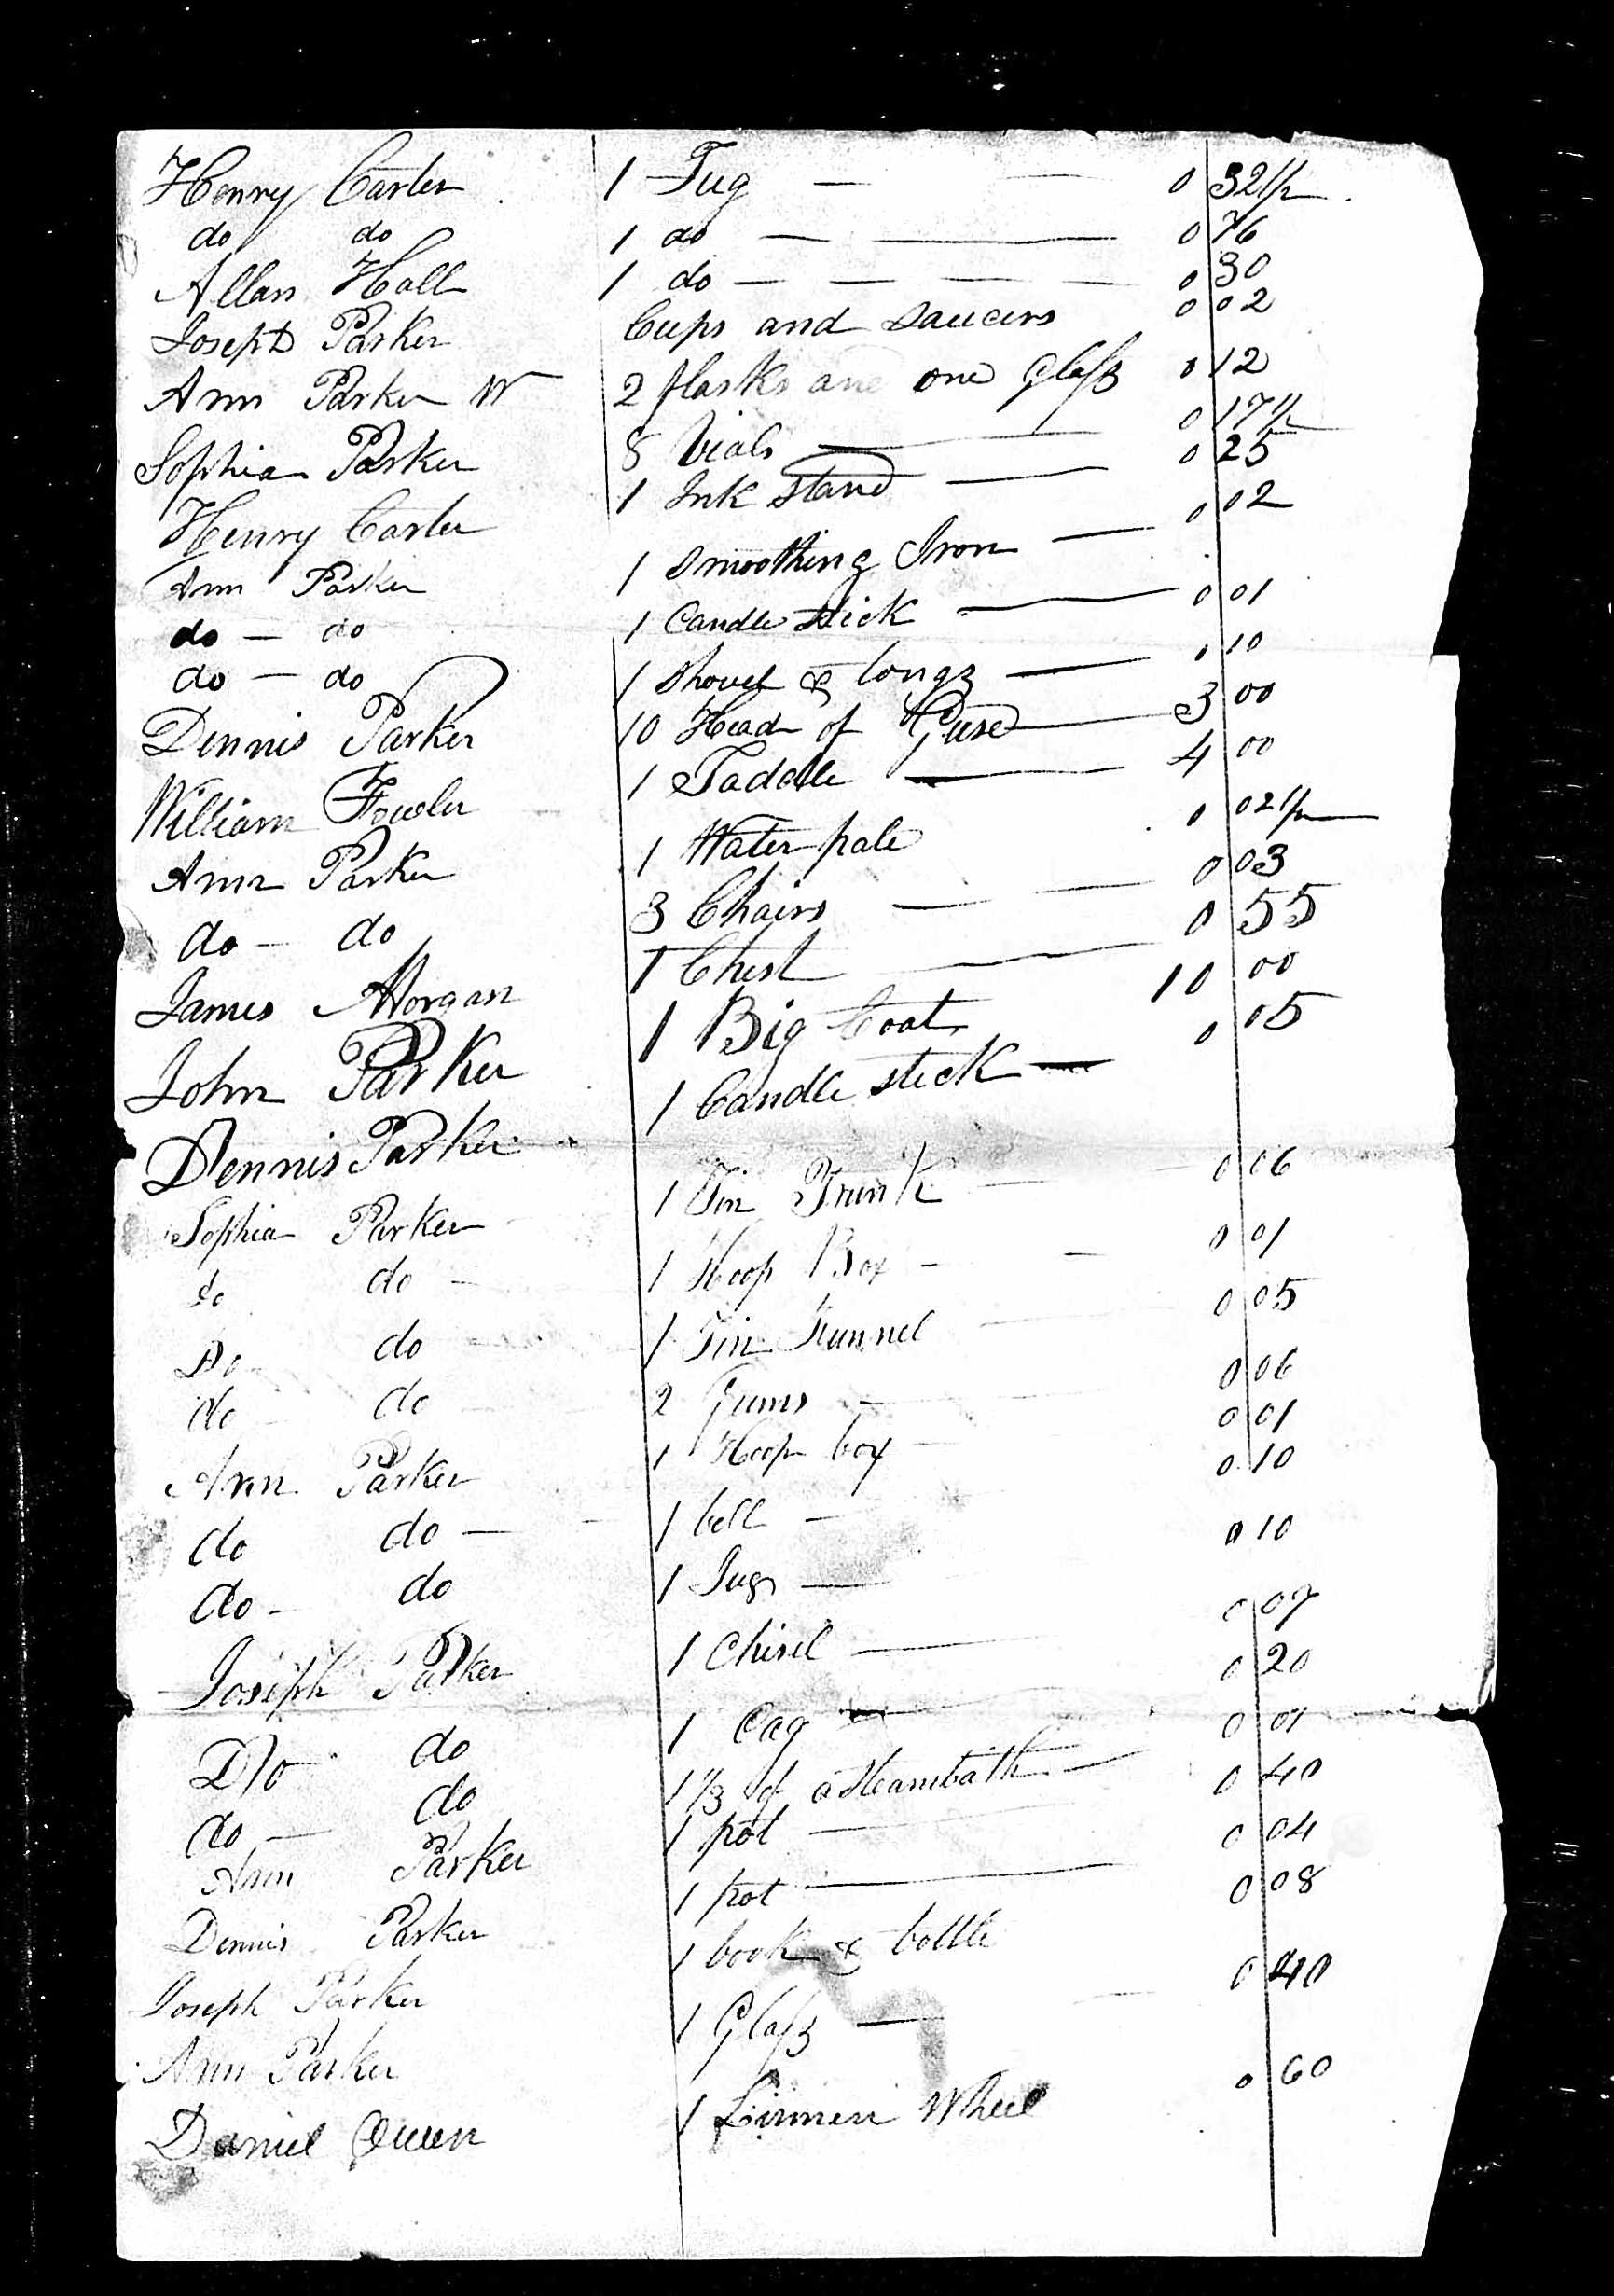 Henry Carter 1 Jug — — 0 32 1/2
do do 1 do — — 0 76
Allan Hall 1 do — — — — 0 30
Joseph Parker Cups and saucers 0 02
Ann Parker W 2 flasks and one Glass 0 12
Sophia Parker 8 Vials — 0 17 1/2
Henry Carter 1 Ink stand — 0 25
Ann Parker 1 smoothing Iron — 0 02
do — do 1 Candle stick — 0 01
do — do 1 shovel & tongs — 0 10
Dennis Parker 10 Head of Guse — 3 00
William Fowler 1 Saddle — 4 00
Ann Parker 1 Water pale 0 02 1/2
do — do 3 Chairs — — 0 03
James Morgan 1 Chest — 0 55
John Parker 1 Big Coat 10 00
Dennis Parker 1 Candle stick — 0 05
Sophia Parker 1 Tin Trunk — 0 06
do do — 1 Hoop Box — — 0 01
Do do 1 Tin Funnel — 0 05
do do 2 Gums — 0 06
Ann Parker 1 Hoop box — 0 01
do do — 1 bell — 0 10
do — do 1 Jug — 0 10
Joseph Parker 1 Chisel — 0 07
Do do 1 Cag — 0 20
do — do 1 1/3 of a Steambath — 0 01
Ann Parker 1 pot — 0 40
Dennis Parker 1 pot — 0 04
Joseph Parker 1 book & bottle 0 08
Ann Parker 1 Glass — 0 40
Daniel Owen 1 Linnen Wheel 0 60